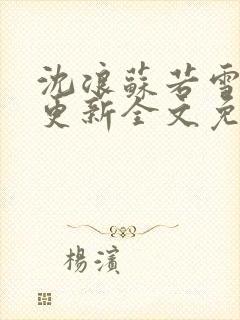 沈浪蘇若雪
更新全文免
楊濱